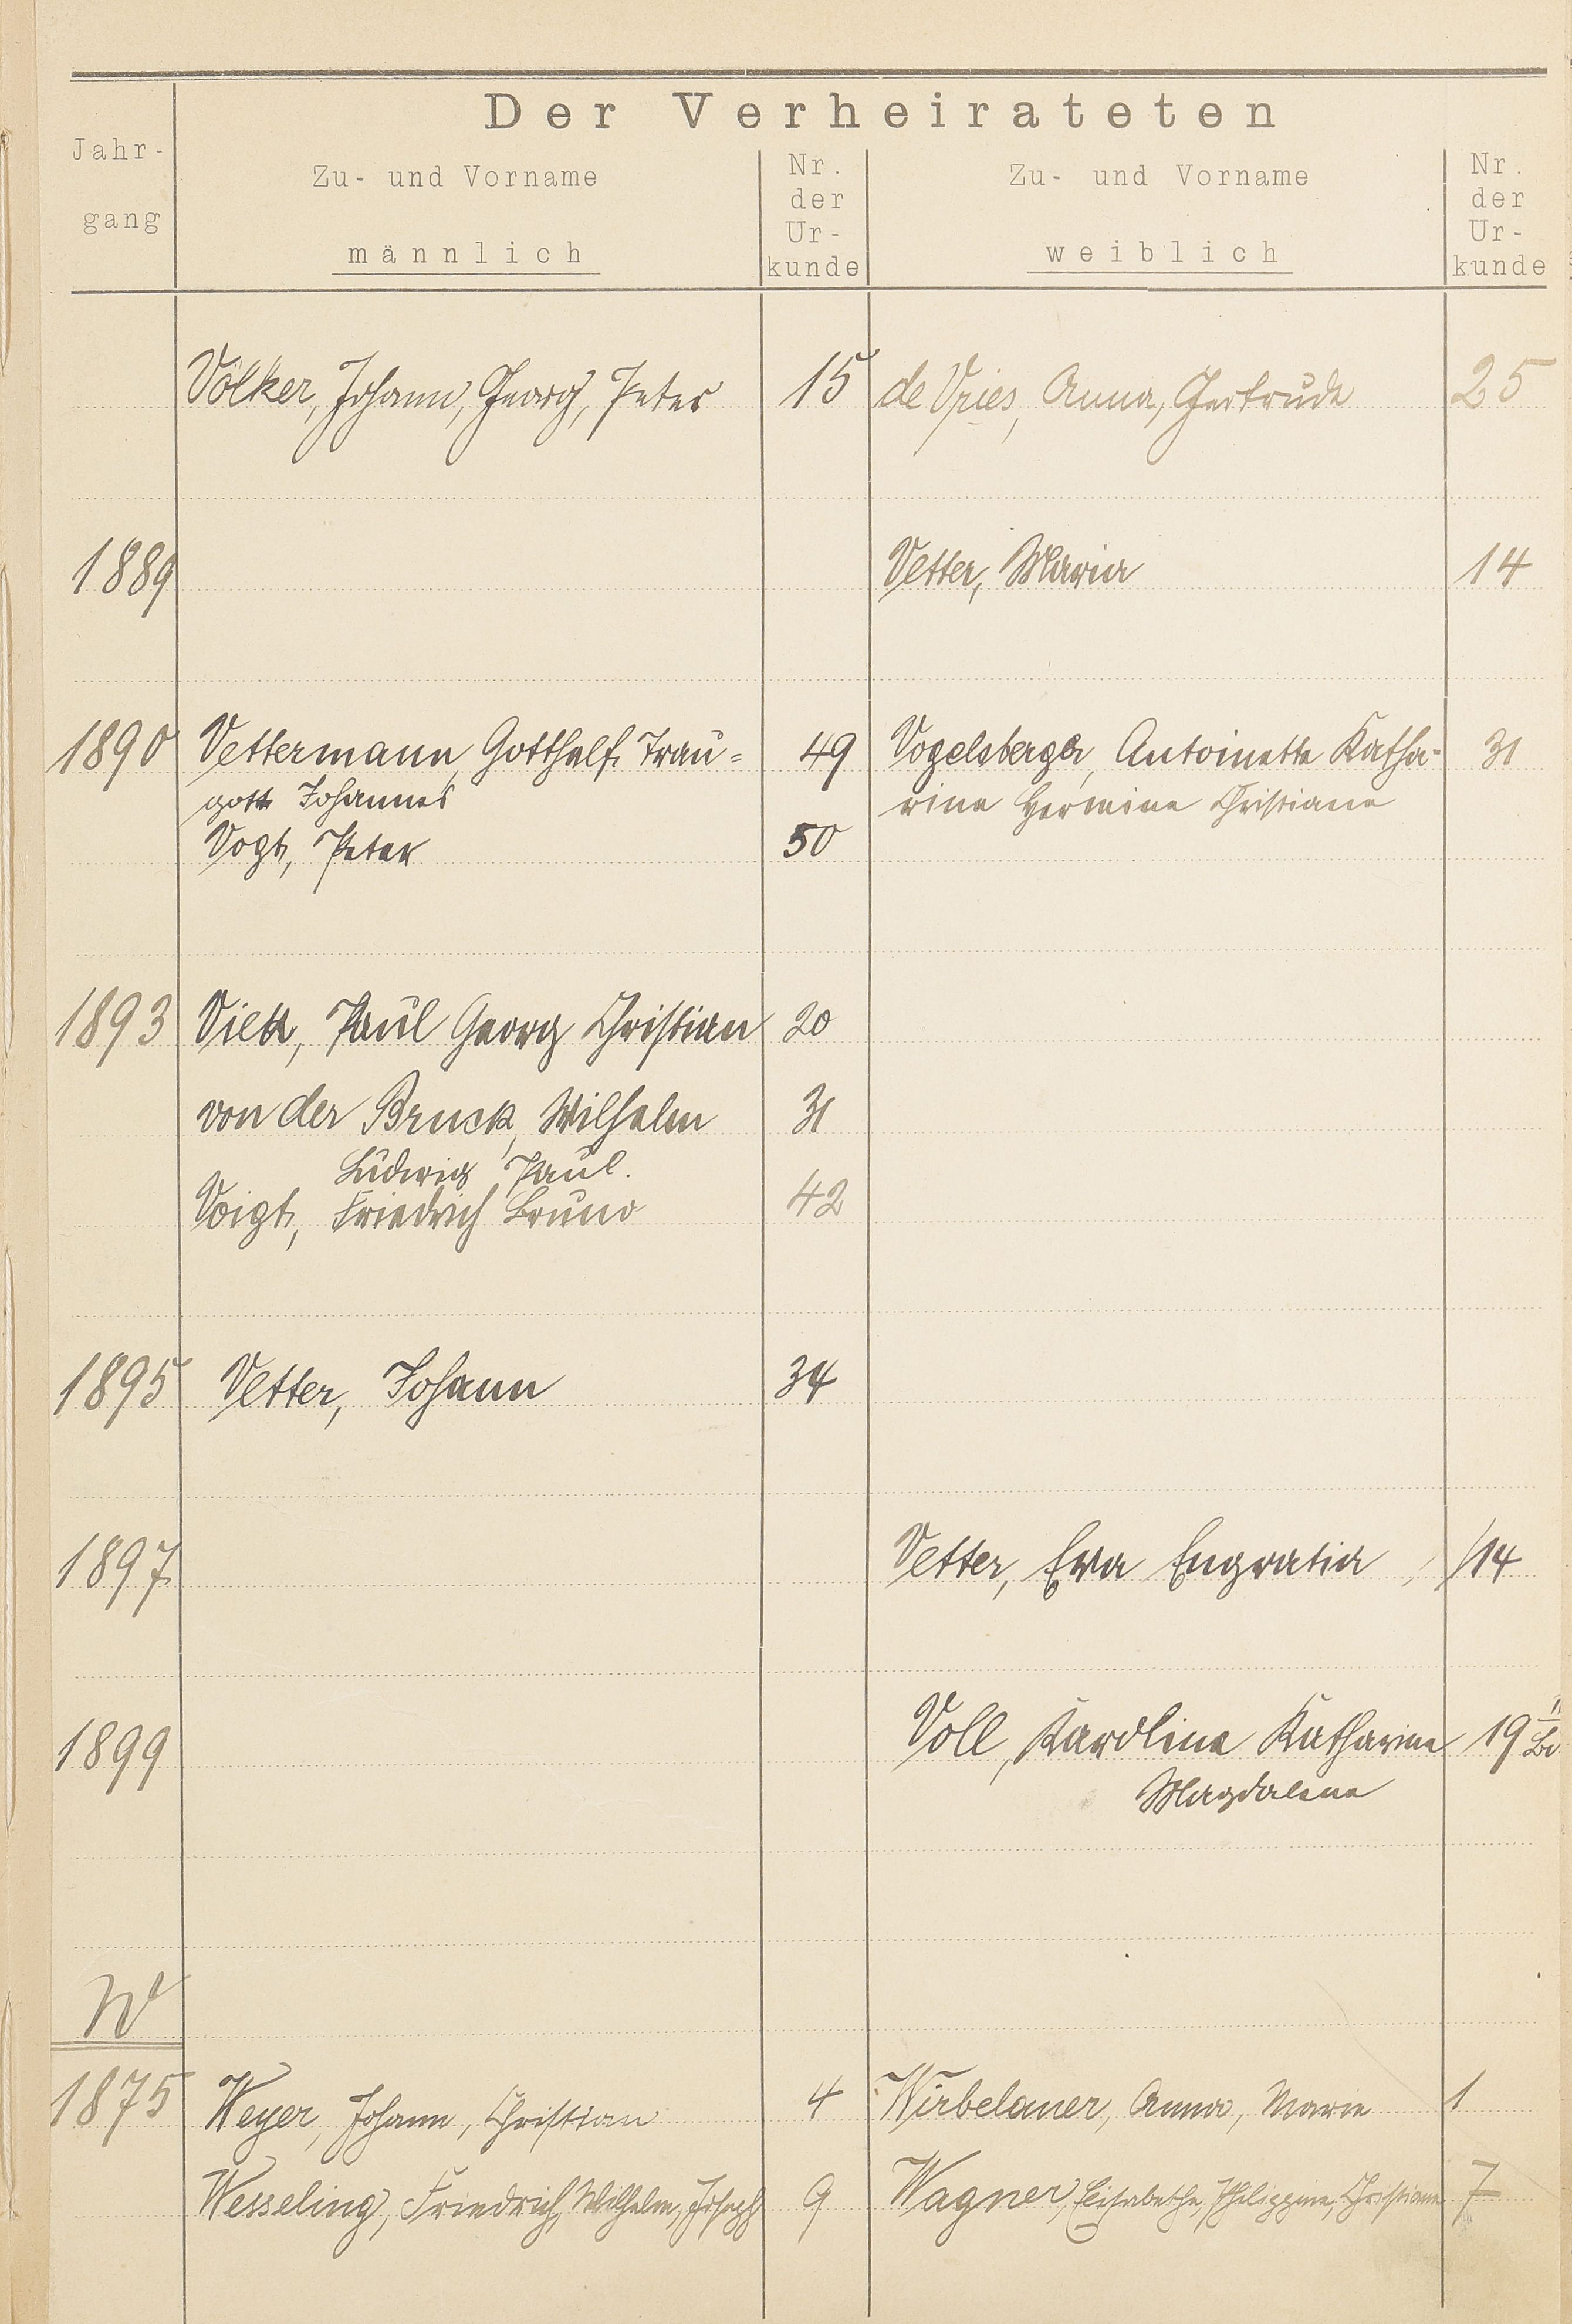 Der Verheirateten
Jahr-
gang
Zu- und Vorname
männlich
Nr.
der
Ur-
kunde
Zu- und Vorname
weiblich
Nr.
der
Ur-
kunde
Völker, Johann, Georg, Peter 15 de Vries, Anna, Gertrude 25
1889 Vetter, Maria 14
1890 Vettermann, Gotthelf Trau= 49 Vogelsberger, Antoinette Katha- 31
gott Johannes rine Hermine Christiane
Vogt, Peter 50
1893 Paul Georg Christian 20
von der Bruck, Wilhelm 31
Ludwig Paul.
Voigt, Friedrich Bruno 42
1895 Vetter, Johann 34
1897 Vetter, Eva Engratia 14
1899 Voll, Karoline Katharine 19
Magdalene
W
1875 Weyer, Johann, Christian 4 Wirbelauer, Anna, Marie 1
Wesseling, Friedrich, Wilhelm, Joseph 9 Wagner, Elisabethe, Philippine, Christiane 7